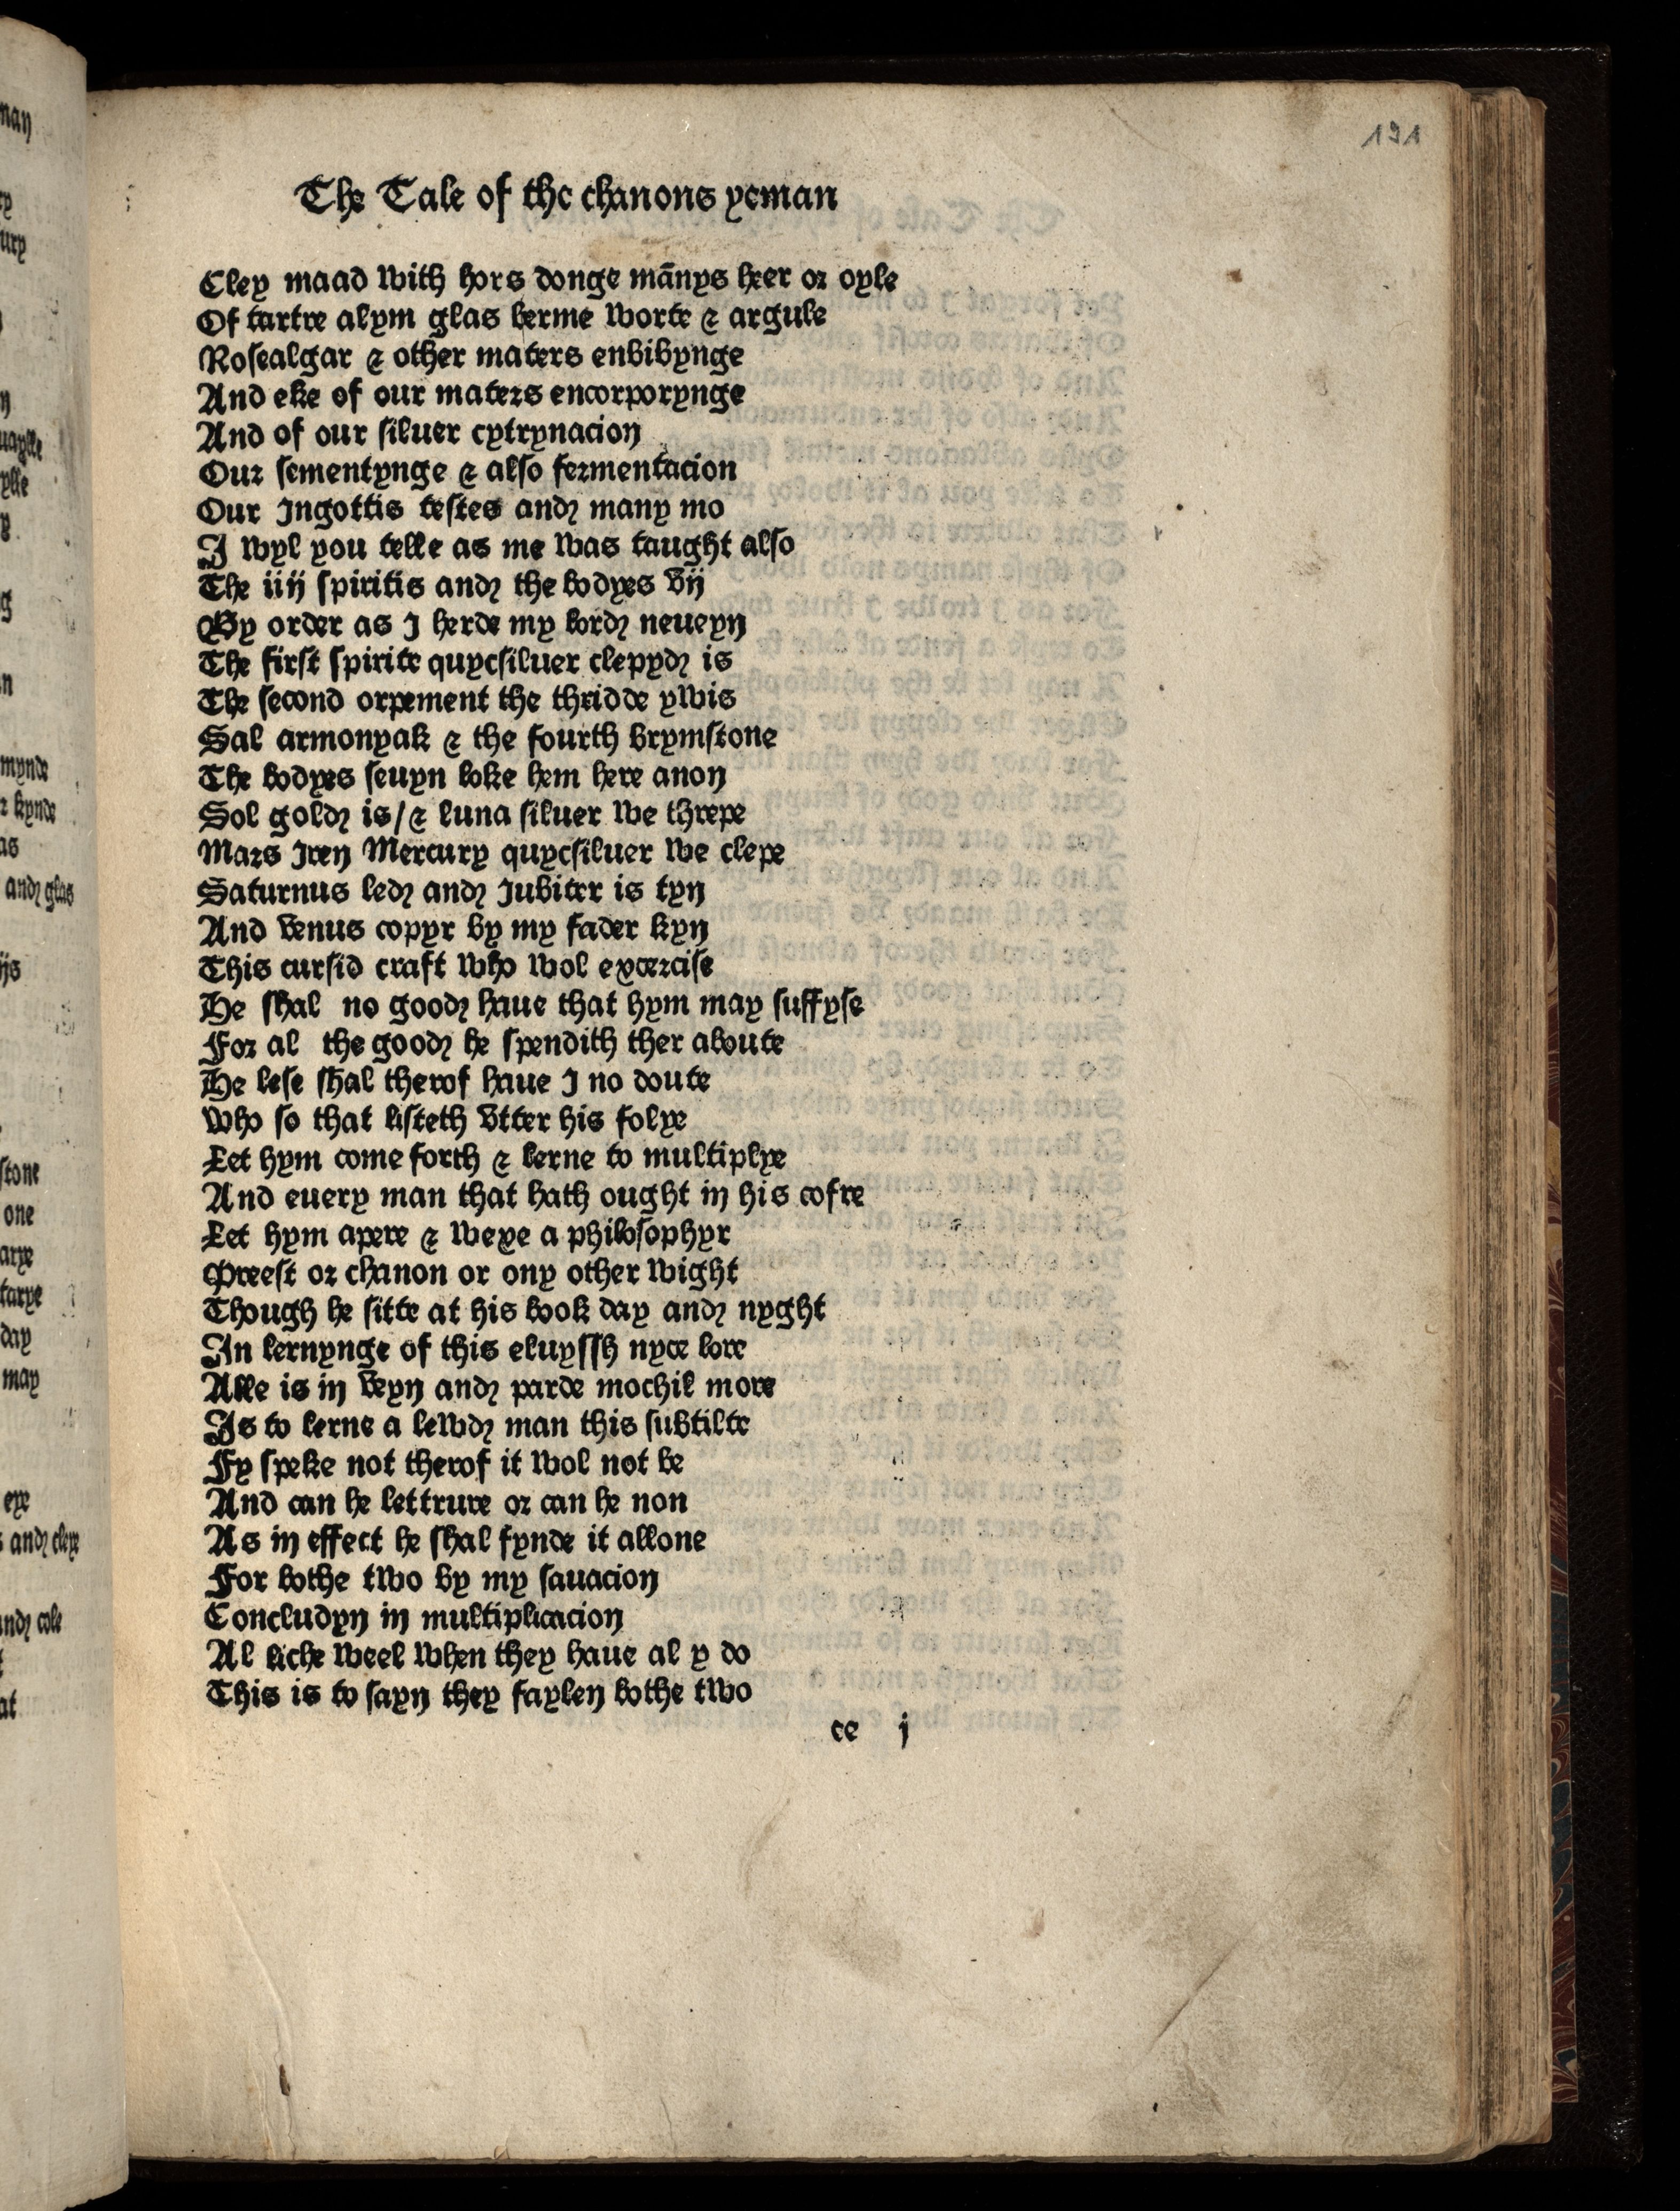 191
The Tale of the chanons yeman
Cley maad with hors donge mānys heer or oyle
Of tartre alym glas berme worte & argule
Roſealgar & other maters enbibynge
And eke of our maters encorporynge
And of our ſiluer cytrynacion
Our ſementynge & alſo fermentacion
Our Ingottis teſtes and many mo
I wyl you telle as me was taught alſo
The iiij ſpiritis and the bodyes vij
By order as I herde my lord neueyn
The firſt ſpirite quycſiluer clepyd is
The ſecond orpement the thridde ywis
Sal armonyak & the fourth brymſtone
The bodyes ſeuyn loke hem here anon
Sol gold is/& luna ſiluer we threpe
Mars Iren Mercury quycſiluer we clepe
Saturnus led and Iubiter is tyn
And venus copyr by my fader kyn
This curſid craft who wol exerciſe
He ſhal no good haue that hym may ſuffyſe
For al the good he ſpendith ther aboute
He leſe ſhal therof haue I no doute
Who ſo that liſteth vtter his folye
Let hym come forth & lerne to multiplye
And euery man that hath ought in his cofre
Let hym apere & wexe a philoſophyr
Preeſt or chanon or ony other wight
Though he ſitte at his book day and nyght
In lernynge of this eluyſſh nyce lore
Alle is in veyn and parde mochil more
Is to lerne a lewd man this ſubtilte
Fy ſpeke not therof it wol not be
And can he lettrure or can he non
As in effect he ſhal fynde it allone
For bothe two by my ſauacion
Concludyn in multiplicacion
Al liche weel when they haue al y do
This is to ſayn they faylen bothe two
ce j